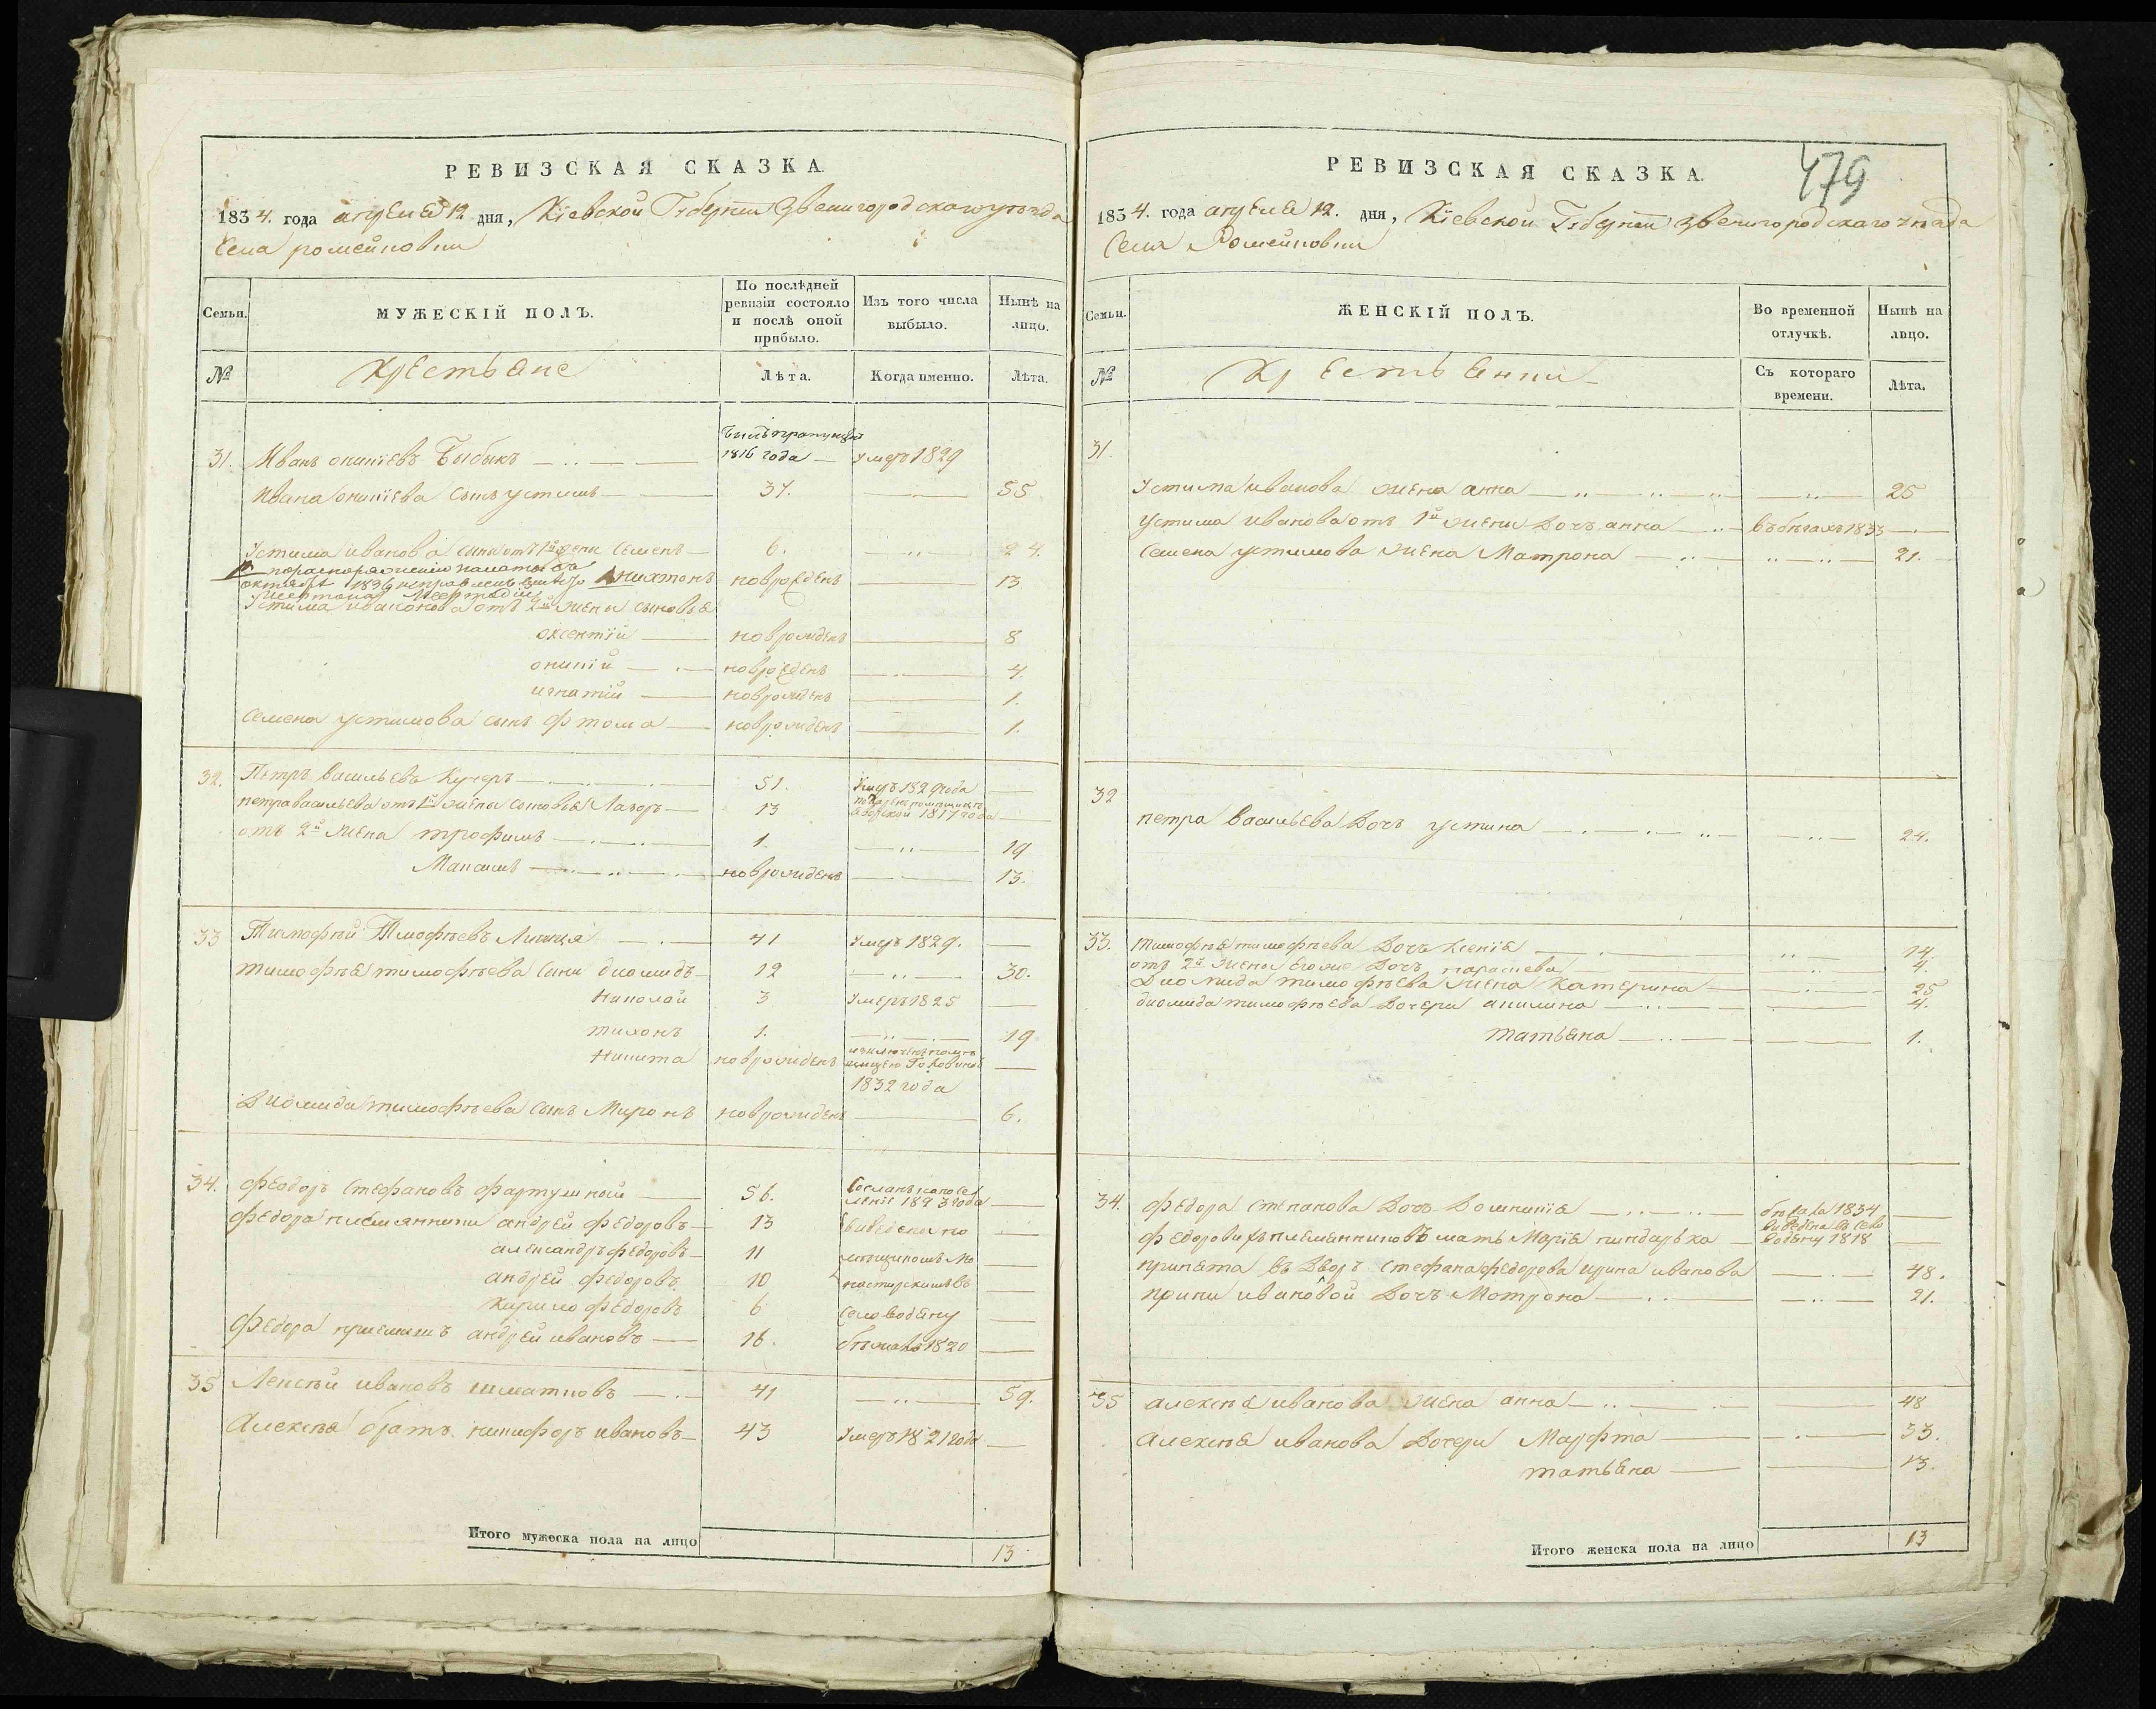 РЕВИЗСКАЯ СКАЗКА.
1834. года апреля 12 дня, Кіевской Губерніи Звенигородскаго уезда
Села ромейковки
Семьи. МУЖЕСКІЙ ПОЛЪ. По послѣдней ревизіи состояло и послѣ оной прибыло. Изъ того числа выбыло. Нынѣ на лицо.
№ Крестьяне Лѣта. Когда именно. Лѣта.
31. Иванъ Бибикъ 1816 года умеръ 1829
Ивана сынъ устимъ 37. 55
Устима иванова сынъ отъ 1й жени Семенъ 6. 24.
по распоряженію палаты
новрожденъ 13
Устима иванова отъ 2й жены сыновья
оксентій новрожденъ 8
новрожденъ 4.
игнатій новрожденъ 1.
Семена устимова сынъ новрожденъ 1.
32. Петръ васильевъ Кучеръ 51. Умеръ 1829 года
петра васильева отъ 1й жены сыновья Лазоръ 13 1817 года
отъ 2й жены трофимъ 1. 19
Максимъ новрожденъ 13.
33 Тимофѣй Тимофѣевъ 41 умеръ 1829.
тимофѣя тимофѣева сыни диомидъ 12 30.
Николай 3 умеръ 1825
тихонъ 1. 19
Никита новрожденъ 1832 года
Диомида тимофѣева сынъ Миронъ новрожденъ 6.
34. Феодоръ Стефановъ 56. Сосланъ на поселеніе 1823 года
Федора племянники андрей федоровъ 13 виведени по
александръ федоровъ 11
андрей федоровъ 10
федоровъ 6 село водяну
Федора андрей ивановъ 16. бѣжавъ 1820
35 Лексѣй ивановъ шматковъ 41 59.
Алексѣя братъ никифоръ ивановъ 43 умеръ 1821 года
Итого мужеска пола на лицо 13
РЕВИЗСКАЯ СКАЗКА.
479
1834. года апреля 12. дня, Кіевской Губерніи Звенигородскаго уезда
Села Ромейковки
Семьи. ЖЕНСКІЙ ПОЛЪ. Во временной отлучкѣ. Нынѣ на лицо.
№ Съ котораго времени. Лѣта.
31.
Устима иванова жена анна 25
Устима иванова отъ 1й жени дочъ анна въ бѣгахъ 1833
Семена устимова жена Матрона 21.
32
петра васильева дочъ устина 24.
33. тимофѣя тимофѣева дочъ Ксенія 14.
отъ 2й жены его же дочъ парасцева 4.
Диомида тимофѣева жена Катерина 25
диомида тимофѣева дочери акилина 4.
татьяна 1.
34. Федора степанова дочъ бѣгала 1834
Федоровихъ племенниковъ мать Марія виведена въ село водяну 1818
принята въ дворъ Стефана федорова ирина иванова 48.
ирини ивановой дочъ Мотрона 21.
35 алексѣя иванова жена анна 48
алексѣя иванова дочери Марфта 33.
татьяна 13.
Итого женска пола на лицо 13